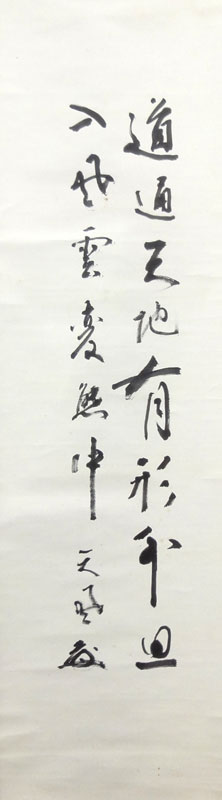 道通天地有形外思
入風雲變態中 天風